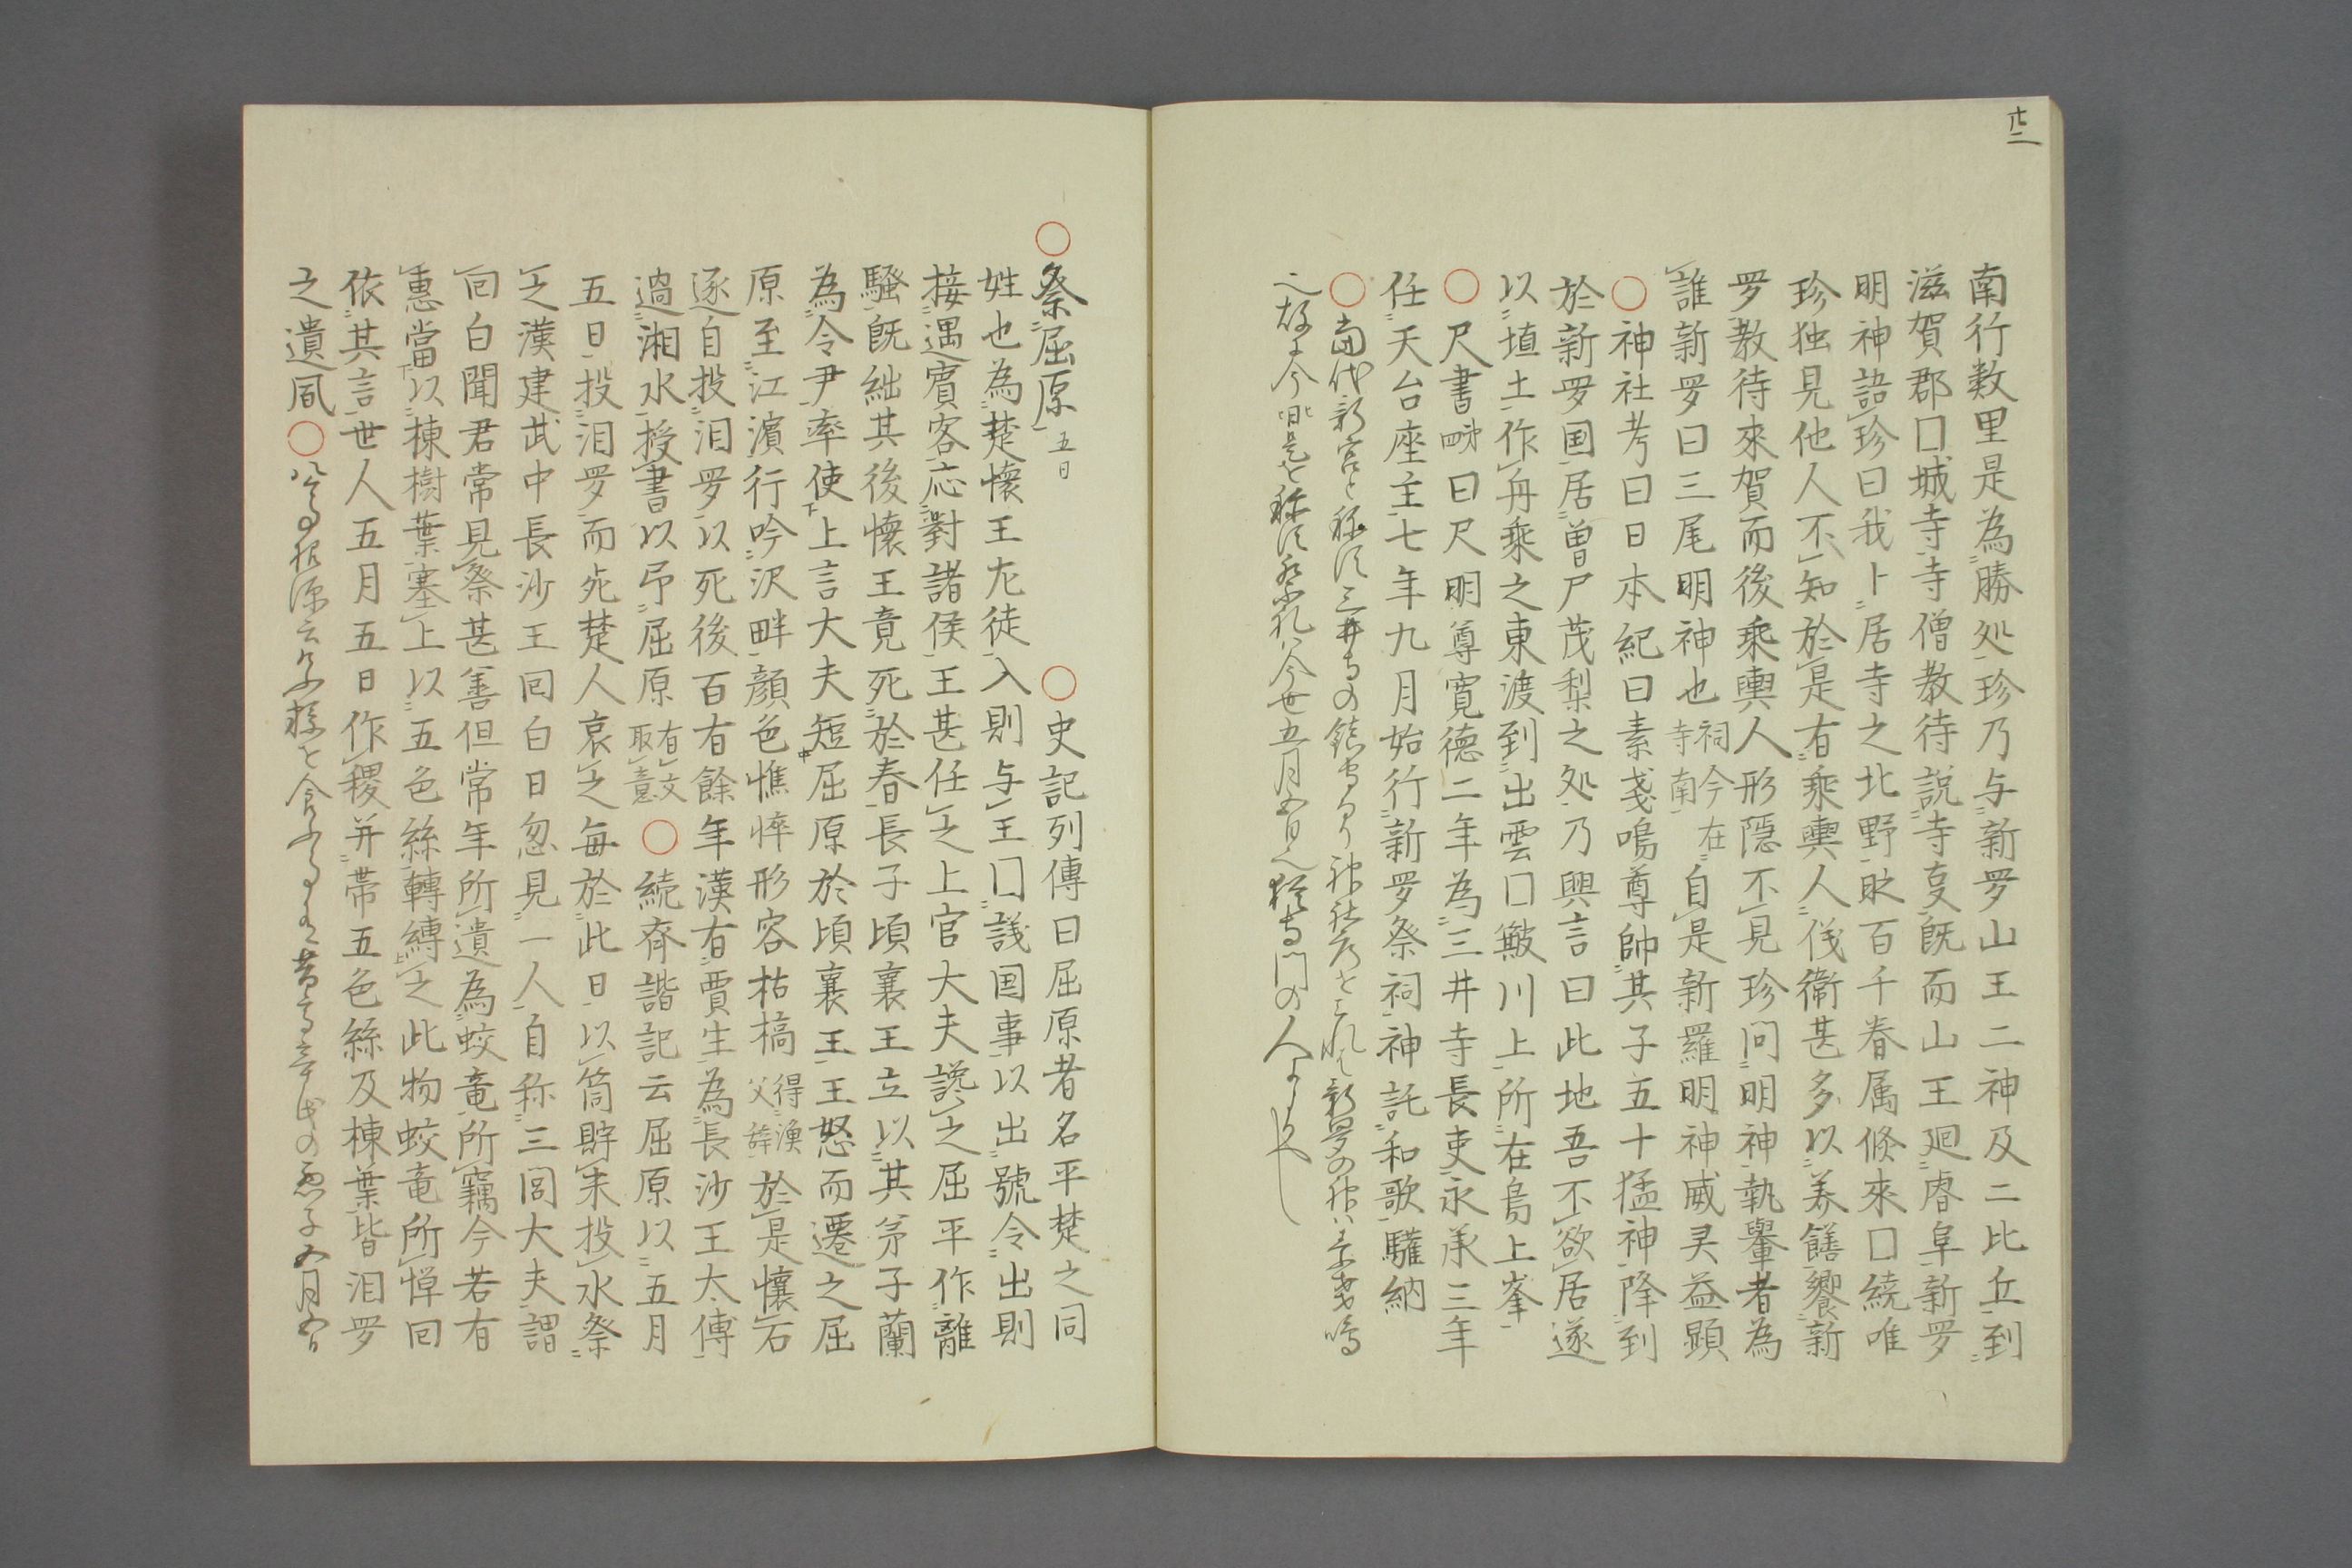 南行数里是為勝処珍乃与新罗山王二神及二比丘到
滋賀郡囗城寺寺僧教待説寺㕝既而山王廻睿阜新罗
明神語珍曰我卜居寺之北野時百千眷属倏來囗繞唯
珍独見他人不知於是有乗輿人儀衛甚多以美饍饗新
罗教待來賀而後乗輿人形隠不見珍问明神執轝者為
誰新罗曰三尾明神也祠今在寺南自是新羅明神威灵益顕
○神社考曰日本紀曰素戔鳴尊帥其子五十猛神降到
於新罗国居曽尸茂梨之処乃興言曰此地吾不欲居遂
以埴土作舟乗之東渡到出雲囗簸川上所在鳥上峯
○尺書曰尺明尊寛徳二年為三井寺長吏永承三年
任天台座主七年九月始行新罗祭祠神託和歌驩納
○当代新宮と称注三井寺の鎮守なり神社考とこれハ新罗の神ハ素戔鳴
五月五日
○祭屈原五日　○史記列傳曰屈原者名平楚之同
姓也為楚懷王左徒入則与王囗議国事以出號令出則
接遇賓客応對諸侯王甚任之上官大夫讒之屈平作離
騒既絀其後懷王竟死於春長子頃襄王立以其弟子蘭
為令尹率使上言大夫短屈原於頃襄王王怒而遷之屈
原至江濱行吟沢畔顔色憔悴形容枯槁得漁父辞於是懷石
逐自投汨罗以死後百有餘年漢有賈生為長沙王太傅
過湘水授書以弔屈原有文取意○続齊諧記云屈原以五月
五日投汨罗而死楚人哀之毎於此日以筒貯米投水祭
之漢建武中長沙王囘白日忽見一人自称三閭大夫謂
囘白聞君常見祭甚善但常年所遺為蛟竜所竊今若有
惠當以棟樹葉塞上以五色絲轉縛之此物蛟竜所憚囘
依其言世人五月五日作稷并帯五色絲及棟葉皆汨罗
之遺風○公事根源云